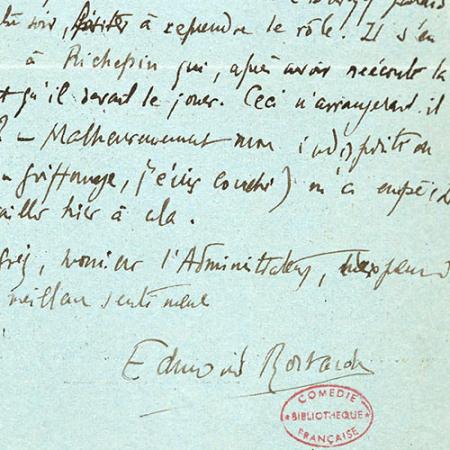 soir, à reprendre le rôle. Il s'en
à Richepin qui, après avoir réécouté la
qu'il devait le jouer. Ceci n'arrangerait-il
? – Malheureusement mon indisposition
griffonage, j'écris couché) m'a empêché
hier à cela.
, monsieur l'Administrateur,
meilleurs sentiments
Edmond Rostand
COMÉDIE
*BIBLIOTHÈQUE*
FRANÇAISE